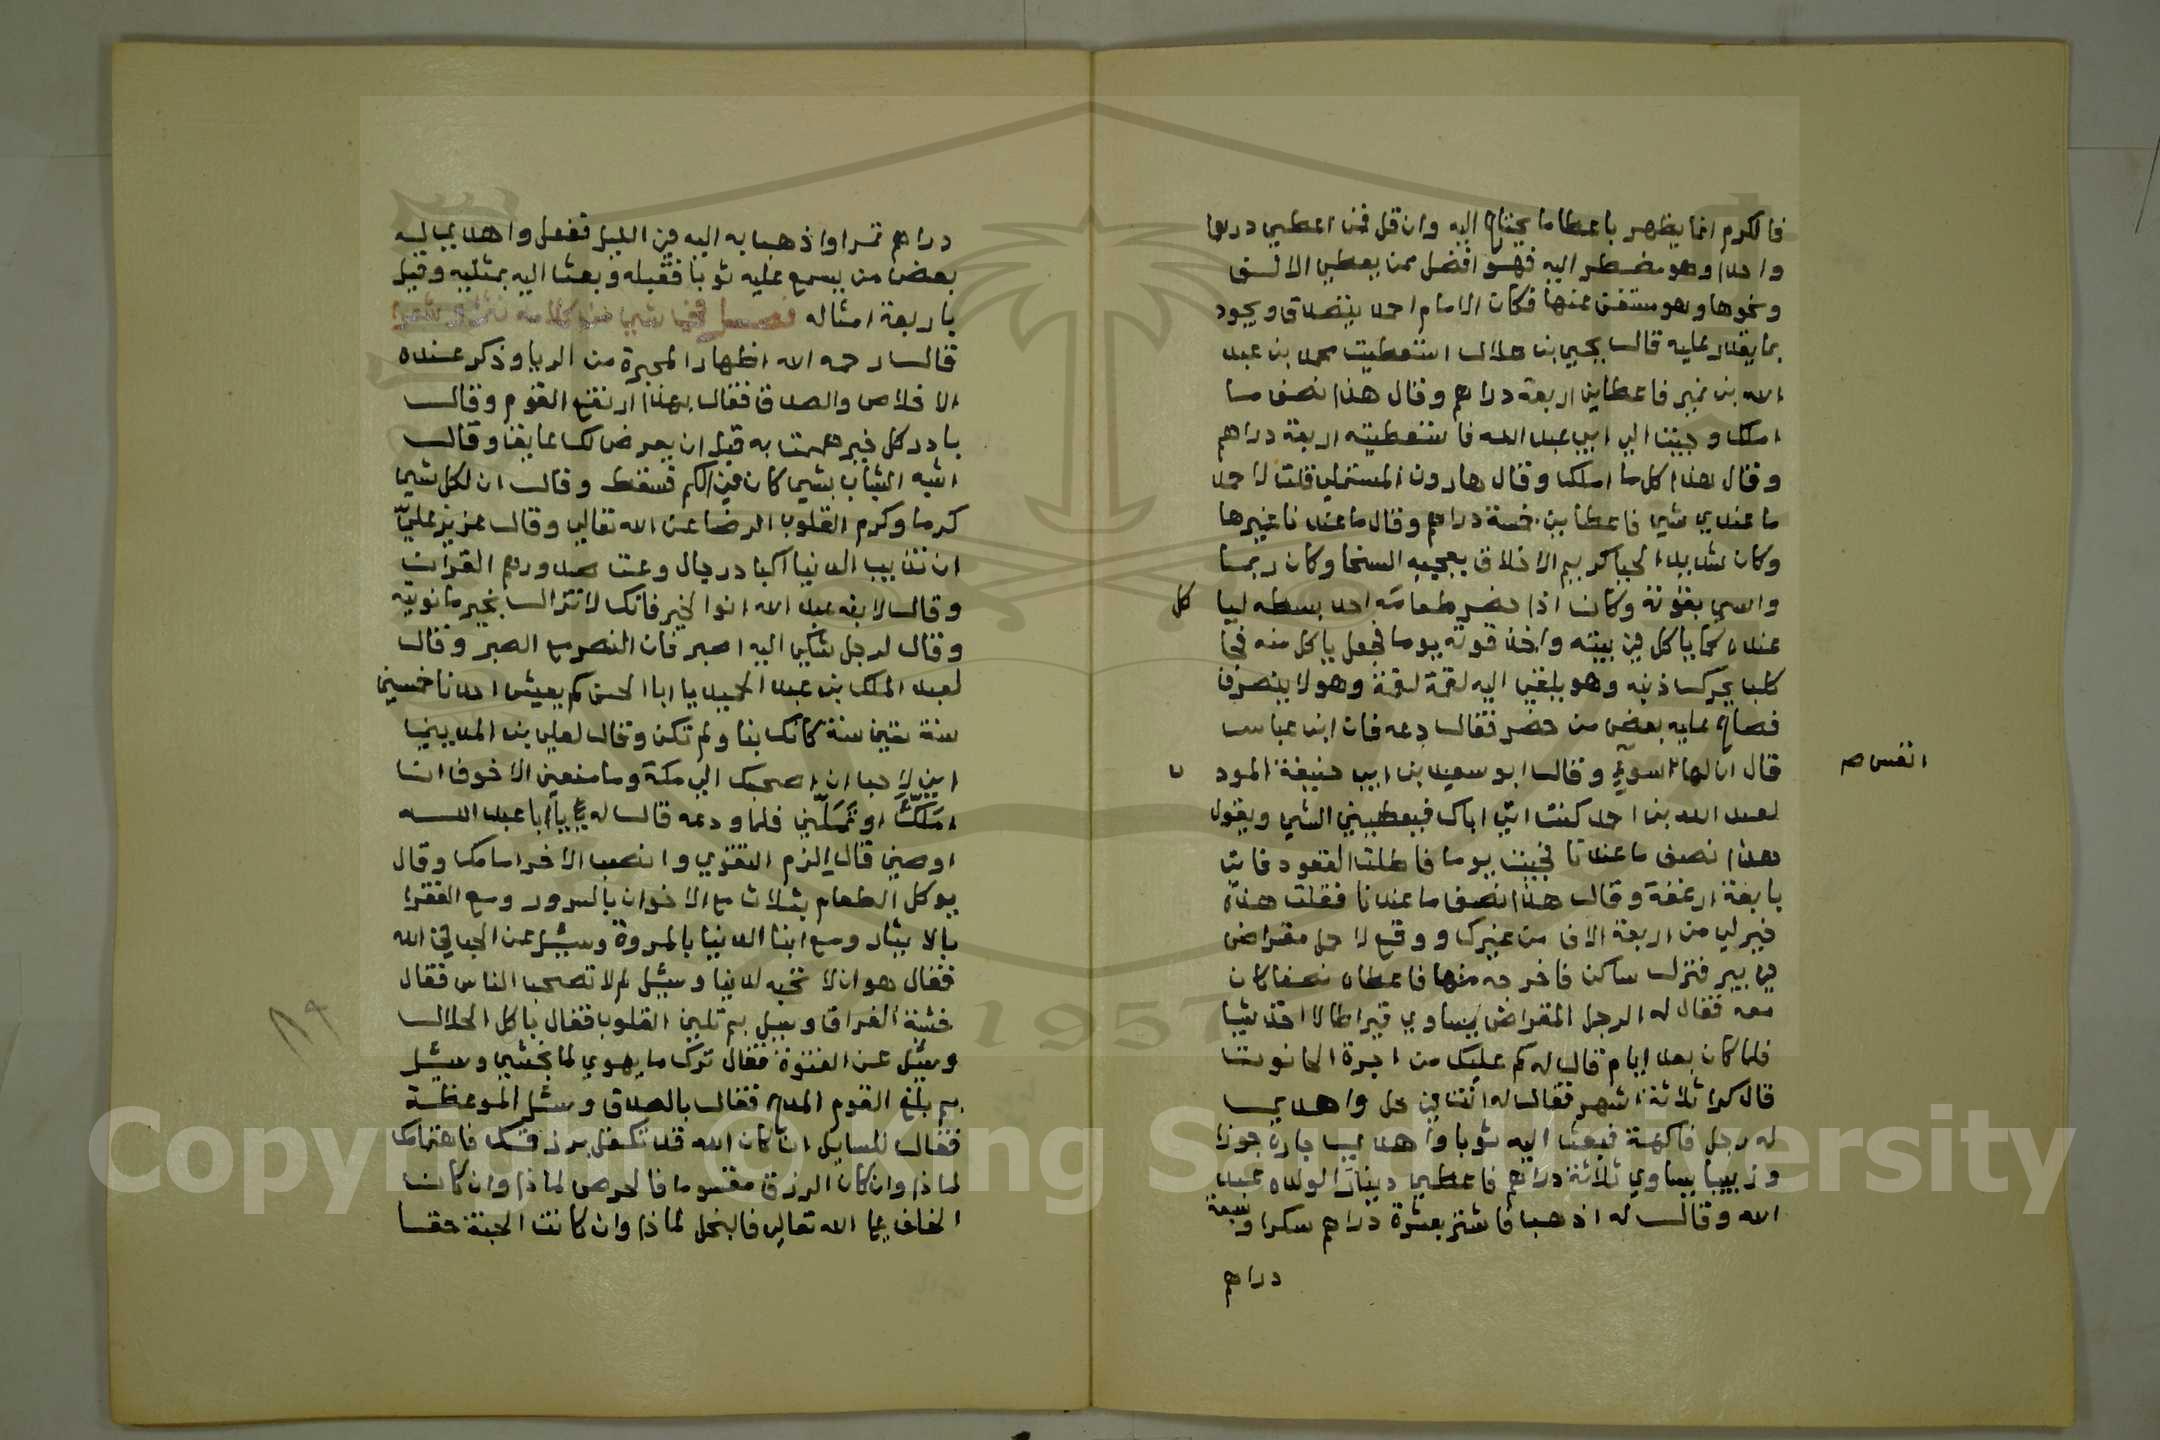 فالكرم انما يظهر باعطا ما يحتاج اليه وان قل فمن اعطي درهما
واحدا وهو مضطر اليه فهو افضل ممن يعطي الالف
ونحوها وهو مستغن عنها فكان الامام احمد يتصدق ويجود
بما يقدر عليه قال يحيي بن هلال استعطيت محمد بن عبد
الله بن نمير فاعطاني اربعة دراهم وقال هذا نصف ما
املك وجيت الي ابي عبد الله فاستعطيته اربعة دراهم
وقال هذا كل ما املك وقال هارون المستملي قلت لاحمد
ما عندي شي فاعطاني خمسة دراهم وقال ما عندنا غيرها
وكان شديد الحيا كريم الاخلاق يعجبه السخا وكان ربما
واسي بقوته وكان اذا حضر طعامه احد بسطه ليا كل
عنده كما ياكل في بيته واخذ قوته يوما فجعل ياكل منه فجا
كلب يحرك ذنبه وهو يلقي اليه لقمة لقمة وهو لا ينصرف
فصاح عليه بعض من حضر فقال دعه فان ابن عباس
قال ان لها انفس سوء وقال ابو سعيد بن ابي حنيفة المود ب
انفس صح
لعبد الله بن احمد كنت اتي اباك فيعطيني الشي ويقول
هذا نصف ما عندنا فجيت يوما فاطلت القعود فاتي
باربعة ارغفة وقال هذا نصف ما عندنا فقلت هذه
خير لي من اربعة الاف من غيرك ووقع لاحمد مقراض
في بير فنزل ساكن فاخرجه منها فاعطاه نصفا كان
معه فقال له الرجل المقراض يساوي قيراطا لا اخذ شيا
فلما كان بعد ايام قال له كم عليك من اجرة الحانوت
قال كرا ثلاثة اشهر فقال له انت في حل واهدي
له رجل فاكهة فبعث اليه ثوبا واهدي جاره جوزا
وزبيبا يساوي ثلاثة دراهم فاعطي دينارا لولده عبد
الله وقال له اذهب فاشتر بعشرة دراهم سكرا وسبعة
دراهم
دراهم تمرا واذهب به اليه في الليل ففعل واهدي اليه
بعض من يسمع عليه ثوبا فقبله وبعث اليه بمثليه وقيل
باربعة امثاله فصل في شي من كلامه نثرا وشعرا
قال رحمه الله اظهار المحبرة من الريا وذكر عنده
الاخلاص والصدق فقال بهذا ارتفع القوم وقال
بادر كل خير هممت به قبل ان يعرض لك عايقا وقال
اشبه الشباب بشي كان في الكم فسقط وقال ان لكل شي
كرما وكرم القلوب الرضا عن الله تعالي وقال عزيز علي
ان تذيب الدنيا اكباد رجال وعت صدورهم القران
وقال لابنه عبد الله انوا الخير فانك لا تزال بخير ما نويته
وقال لرجل شكي اليه اصبر فان النصر مع الصبر وقال
لعبد الملك بن عبد الحميد يا ابا الحسن كم يعيش احدنا خمسين
سنة ستين سنة كانك بنا ولم نكن وقال لعلي بن المديني
اني لاحب ان اصحبك الي مكة وما منعني الا خوف ان
املك او تملني فلما ودعه قال له يا ابا عبد الله
اوصني قال الزم التقوي وانصب الاخرة امامك وقال
يوكل الطعام بثلاث مع الاخوان بالسرور ومع الفقرا
بالايثار ومع ابنا الدنيا بالمروة وسئل عن الحب في الله
فقال هو ان لا تحبه لدنيا وسئل لم لا تصحب الناس فقال
خشية الفراق وسيل بم تلين القلوب فقال باكل الحلال
وسئل عن الفتوة فقال ترك ما يهوي لما يخشي وسئل
بم بلغ القوم المدح فقال بالصدق وسئل الموعظة
فقال للسايل ان كان الله قد تكفل برزقك فاهتمامك
لماذا وان كان الرزق مقسوما فالحرص لماذا وان كان
الخلف علي الله تعالي فالبخل لماذا وان كانت الجنة حقا
٨٩
1957
Copyright © King Saud University